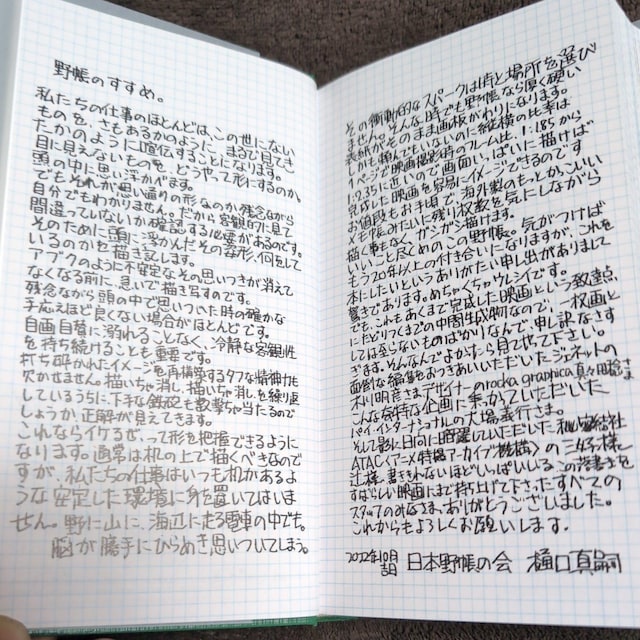 野帳のすすめ。
私たちの仕事のほとんどは、この世にない
ものを、さもあるかのように、まるで見てき
たかのように喧伝することになります。
目に見えないものを、どうやって形にするのか。
頭の中に思い浮かべます。
でもそれが思い通りの形なのか残念ながら
自分でもわかりません。だから客観的に見て
間違っていないか確認する必要があるのです。
そのために頭に浮かんだその姿形、何をして
いるのかを描き記します。
アブクのように不安定なその思いつきが消えて
なくなる前に、急いで描き写すのです。
残念ながら頭の中で思いついた時の確かな
手応えほど良くない場合がほとんどです。
自画自賛に溺れることなく、冷静な客観性
を持ち続けることも重要です。
打ち砕かれたイメージを再構築するタフな精神力も
欠かせません。描いちゃ消し、描いちゃ消しを繰り返
しているうちに、下手な鉄砲も数撃ちゃ当たるので
しょうか、正解が見えてきます。
これならイケるぜ、って形を把握できるように
なります。通常は机の上で描くべきなので
すが、私たちの仕事はいつも机があるよ
うな安定した環境に身を置いてはいま
せん。野に山に、海辺に走る電車の中でも。
脳が勝手にひらめき思いついてしまう。
その衝動的なスパークは時と場所を選び
ません。そんな時でも野帳なら厚く硬い
表紙がそのまま画板がわりになります。
しかも頼んでもいないのに縦横の比率は
1ページで映画撮影時のフレーム、1:1.85から
1:2.35に近いので画面いっぱいに描けば
完成した映画を容易にイメージできるのです
お値段もお手頃で、海外製のもっとかっこいい
メモ帳みたいに残り枚数を気にしながら
描く事もなく、ガシガシ描けます。
いいこと尽くめのこの野帳。気がつけば
もう20年以上の付き合いになりますが、これを
本にしたいというありがたい申し出がありまして
驚きであります。めちゃくちゃウレシイです。
でもこれもあくまで完成した映画という到達点
にたどりつくまでの中間生成物なので、一枚画と
しては至らないものばかりなんで、申し訳なさす
ぎます。そんなんでよかったら見てやって下さい。
面倒な編集をおつきあいいただいたジェネットの
木川明彦さま、デザイナーのrocka graphica真々田稔さま
こんな奇特な企画に乗っかっていただいた
パイインターナショナルの大場義行さま。
そして影に日向に暗躍していただいた秘密結社
ATAC〈アニメ特撮アーカイブ機構〉の三好様、
辻様、書ききれないほどいっぱいいる、この落書きを
すばらしい映画にまで持ち上げて下さったすべての
スタッフのみなさま、ありがとうございました。
これからもよろしくお願いします。
2022年10月
日本野帳の会 樋口真嗣